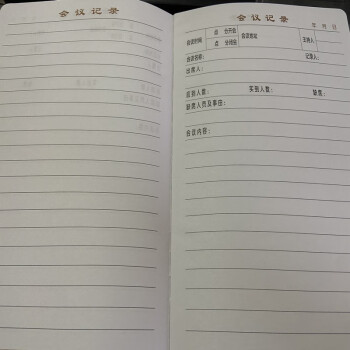 会议记录
会议记录
年 月 日
会议时间 点 分开始 会议地址 主持人
点 分闭会
会议名称： 记录人：
出席人：
应到人数： 实到人数： 缺席：
缺席人员及事由：
会议内容：